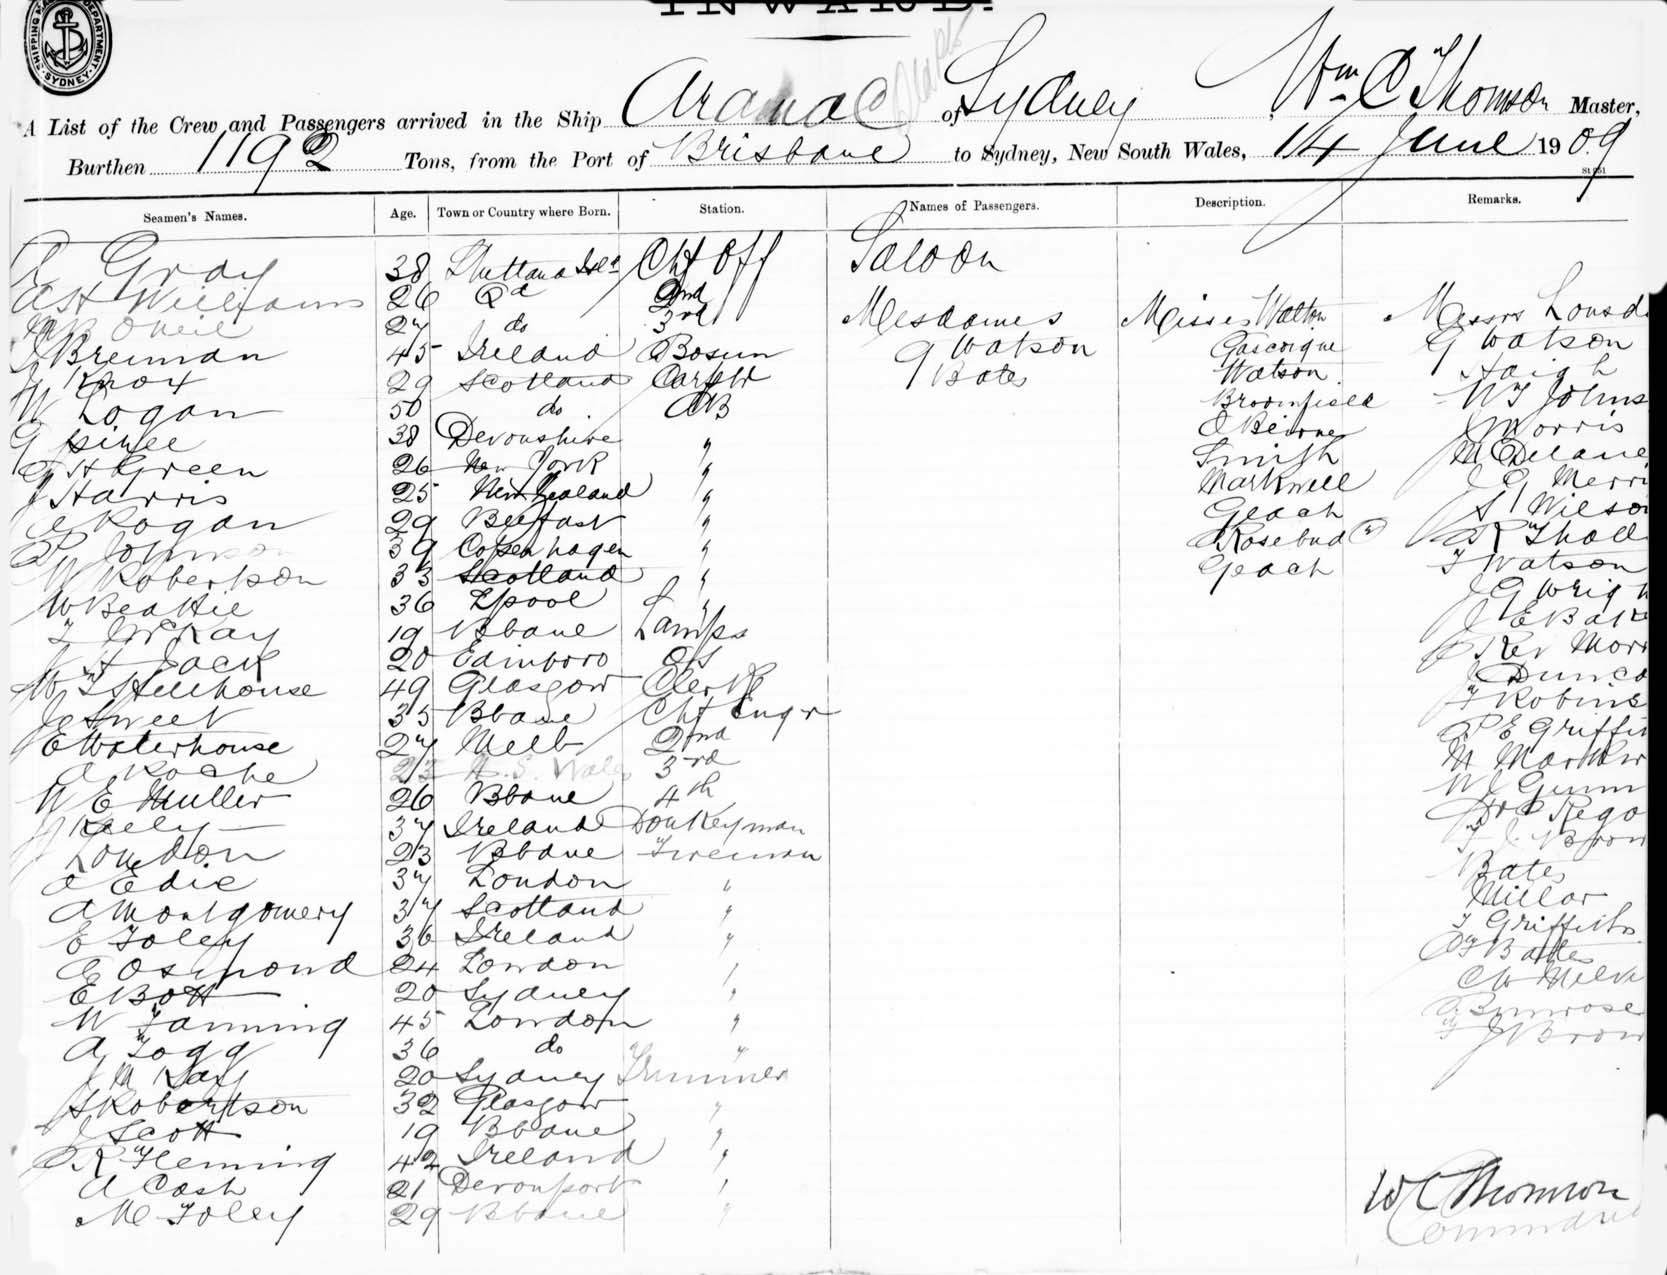 INWARD.
SHIPPING MA DEPARTMENT. SYDNEY.
A List of the Crew and Passengers arrived in the Ship Aramac of Sydney Wm C Thomson Master,
Burthen 1192 Tons, from the Port of Brisbane to Sydney, New South Wales, 14 June 1909
Seamen's Names. Age. Town or Country where Born. Station. Names of Passengers. Description. Remarks.
Gray 38 Chf Off Saloon
Williams 26 Qd 2nd Mesdames Misses Walton Messrs Lonsd
O'Neil 27 do 3rd G Watson Gascoigne G Watson
Brennan 45 Ireland Bosun Bates Watson Haigh
Knox 29 Scotland Broomfield WJ Johns
W Logan 50 do AB O'Beirne J Morris
G 38 Devonshire " Smith M Delane
H Green 26 New York " Markwell J G Merri
J Harris 25 New Zealand " Geach S Wilson
Rogan 29 Belfast " Rosebud R Thall
P Johnson 39 Copenhagen " Geach T Watson
W Robertson 33 Scotland " J G Wrigh
W Beattie 36 Lpool " J E Bak
McKay 19 Bbane Lamps Rev Morr
H Jack 20 Edinboro OS J Dunca
W T Hillhouse 49 Glasgow Clerk T Robins
J Sweet 35 Bbane Chf Engr P E Griffit
E Waterhouse 27 Melb 2nd M Markw
A Roache 23 N.S. Wales 3rd W J Gunn
W E Muller 26 Bbane 4th Rego
J Kelly 37 Ireland Donkeyman T J Brow
Loudon 23 Bbane Fireman Bates
A Edie 37 London " Millar
A Montgomery 37 Scotland " T Griffiths
E Foley 36 Ireland " Bates
E Osmond 24 London " CW Melv
E Bott 20 Sydney " Primrose
W Fanning 45 London " T J Brow
A Fogg 36 do "
J McKay 20 Sydney Trimmer
H Robertson 32 Glasgow "
J Scott 19 Bbane "
R Fleming 42 Ireland "
A Cash 21 Devonport "
M Foley 29 Bbane "
W C Thomson
Commander